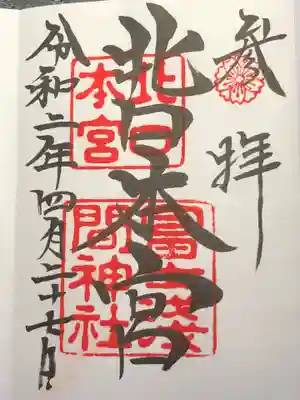 参拝
北日本宮
令和二年四月二十七日
北日
本宮
冨士浅
間神社